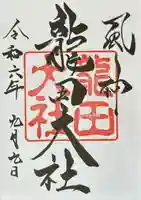 風神
龍田大社
龍田大社
令和六年九月九日